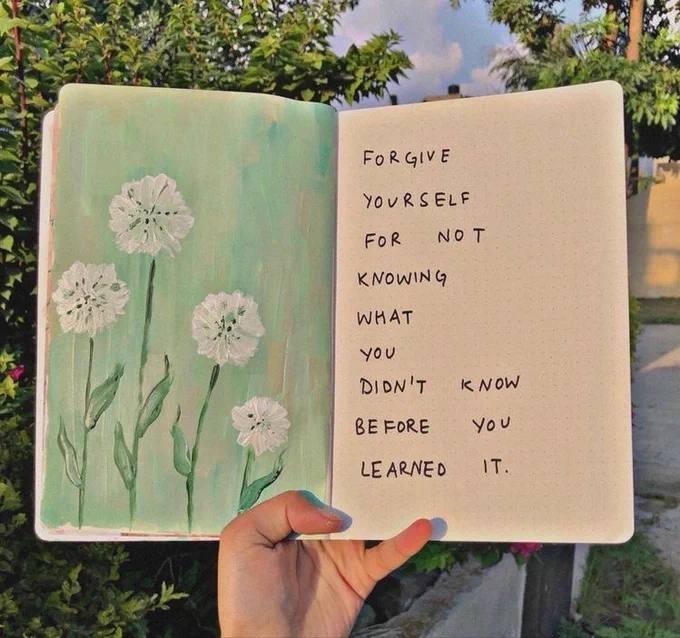 FORGIVE
YOURSELF
FOR NOT
KNOWING
WHAT
YOU
DIDN'T KNOW
BEFORE YOU
LEARNED IT.